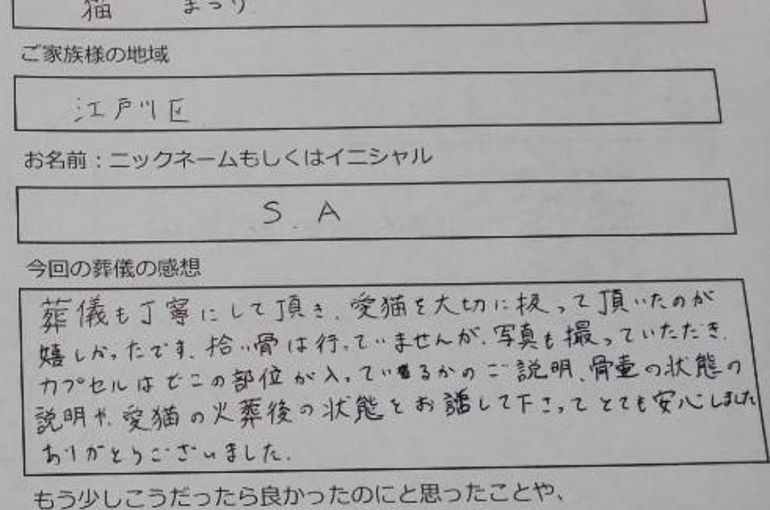 猫 まつり
ご家族様の地域
江戸川区
お名前：ニックネームもしくはイニシャル
S.A
今回の葬儀の感想
葬儀も丁寧にして頂き、愛猫を大切に扱って頂いたのが
嬉しかったです。拾い骨は行っていませんが、写真も撮っていただき、
カプセルはどこの部位が入っているかのご説明、骨壷の状態の
説明や、愛猫の火葬後の状態とお話して下さってとても安心しました
ありがとうございました。
もう少しこうだったら良かったのにと思ったことや、